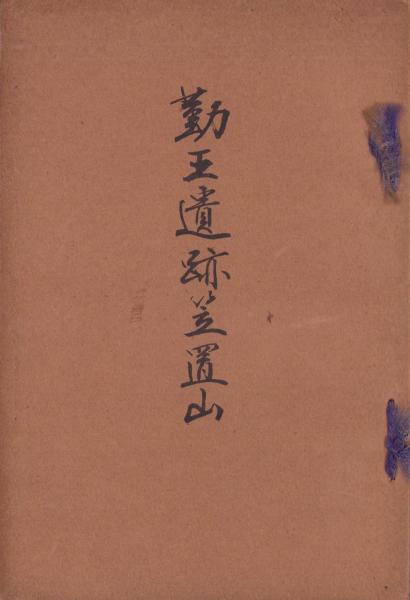 勤王遺跡笠置山